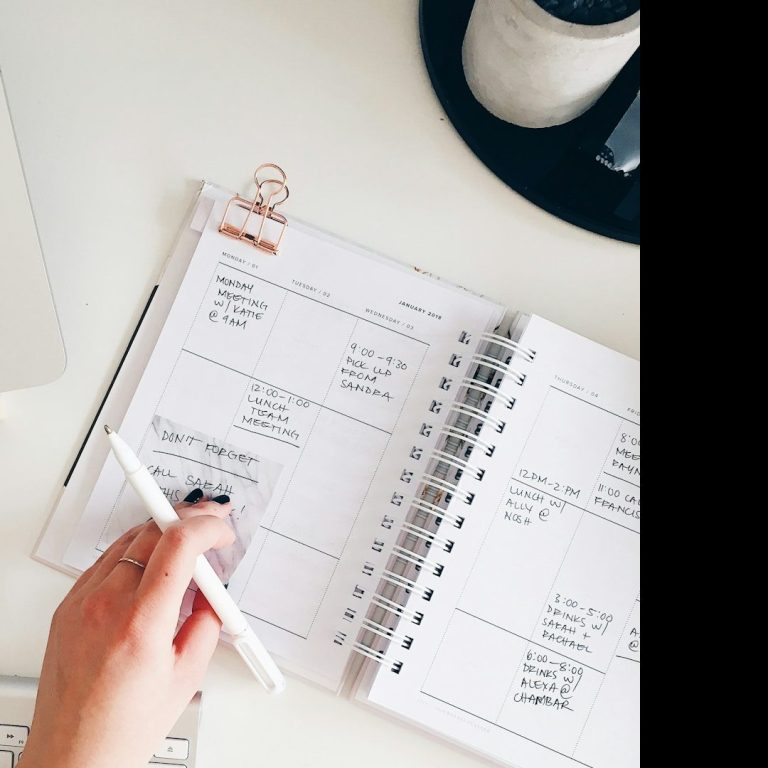 MONDAY / 01
MONDAY
MEETING
W/ KATIE
@ 9AM
TUESDAY / 02
12:00-1:00
LUNCH
TEAM
MEETING
JANUARY 2018
WEDNESDAY / 03
9:00-9:30
PICK UP
FROM
SANDRA
DON'T FORGET
CALL SARAH
THIS
!
THURSDAY / 04
12PM-2:PM
LUNCH W/
ALLY @
NOSH
3:00-5:00
DRINKS W/
SARAH +
RACHAEL
6:00-8:00
DRINKS W/
ALEXA @
CHAMBAR
FRI
8:0
MEE
RAYN
11:00 CA
FRANCIS
A
@